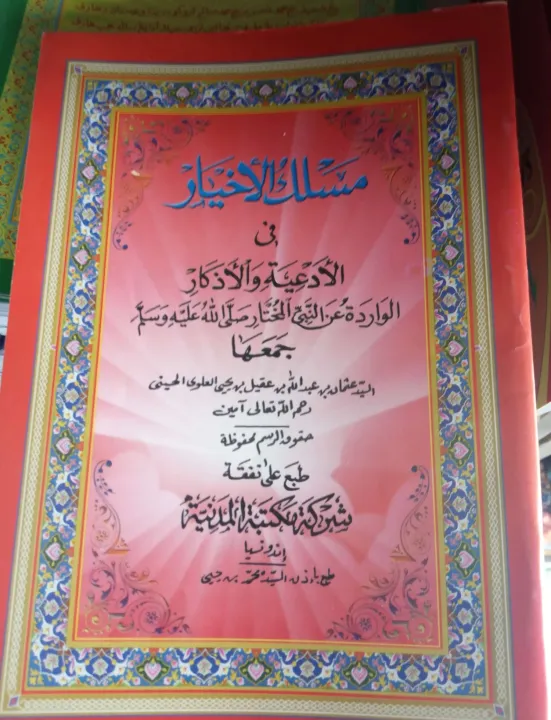 مَسْلَكُ الْأَخْيَارْ
فِي
الْأَدْعِيَةِ وَالْأَذْكَارْ
الْوَارِدَةُ عَنِ النَّبِيِّ الْمُخْتَارِ صَلَّى اللهُ عَلَيْهِ وَسَلَّمَ
جَمَعَهَا
السيّد عثمان بن عبد الله بن عقيل بن يحيى العلوى الحسينى
رحمه الله تعالى آمين
حقوق الرسم محفوظة
طبع على نفقة
شركة مكتبة المدنية
إندونسيا
طبع بإذن السيّد محمّد بن يحيى